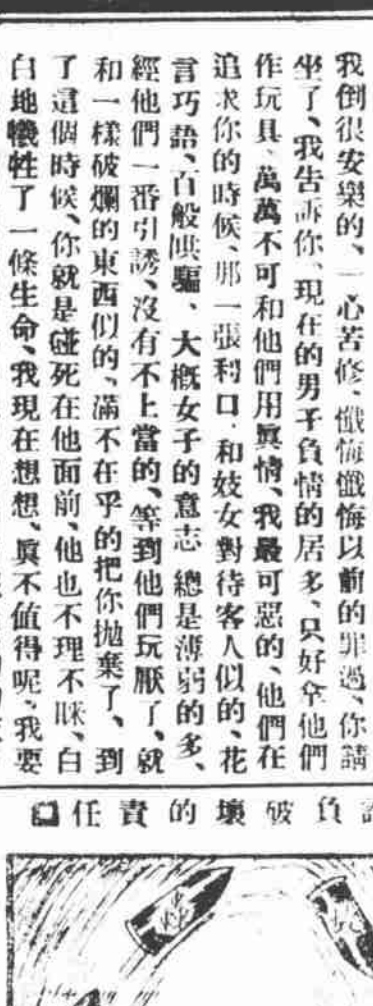 我倒很安樂的、一心苦修、懺悔懺悔以前的罪過、你請
坐了、我告訴你、現在的男子負情的居多、只好拿他們
作玩具、萬萬不可和他們用眞情、我最可惡的、他們在
追求你的時候、那一張利口、和妓女對待客人似的、花
言巧語、百般哄騙、大概女子的意志 總是薄弱的多、
經他們一番引誘、沒有不上當的、等到他們玩厭了、就
和一樣破爛的東西似的、滿不在乎的把你拋棄了、到
了這個時候、你就是碰死在他面前、他也不理不睬、白
白地犧牲了一條生命、我現在想想、眞不值得呢、我要
負破壞的責任